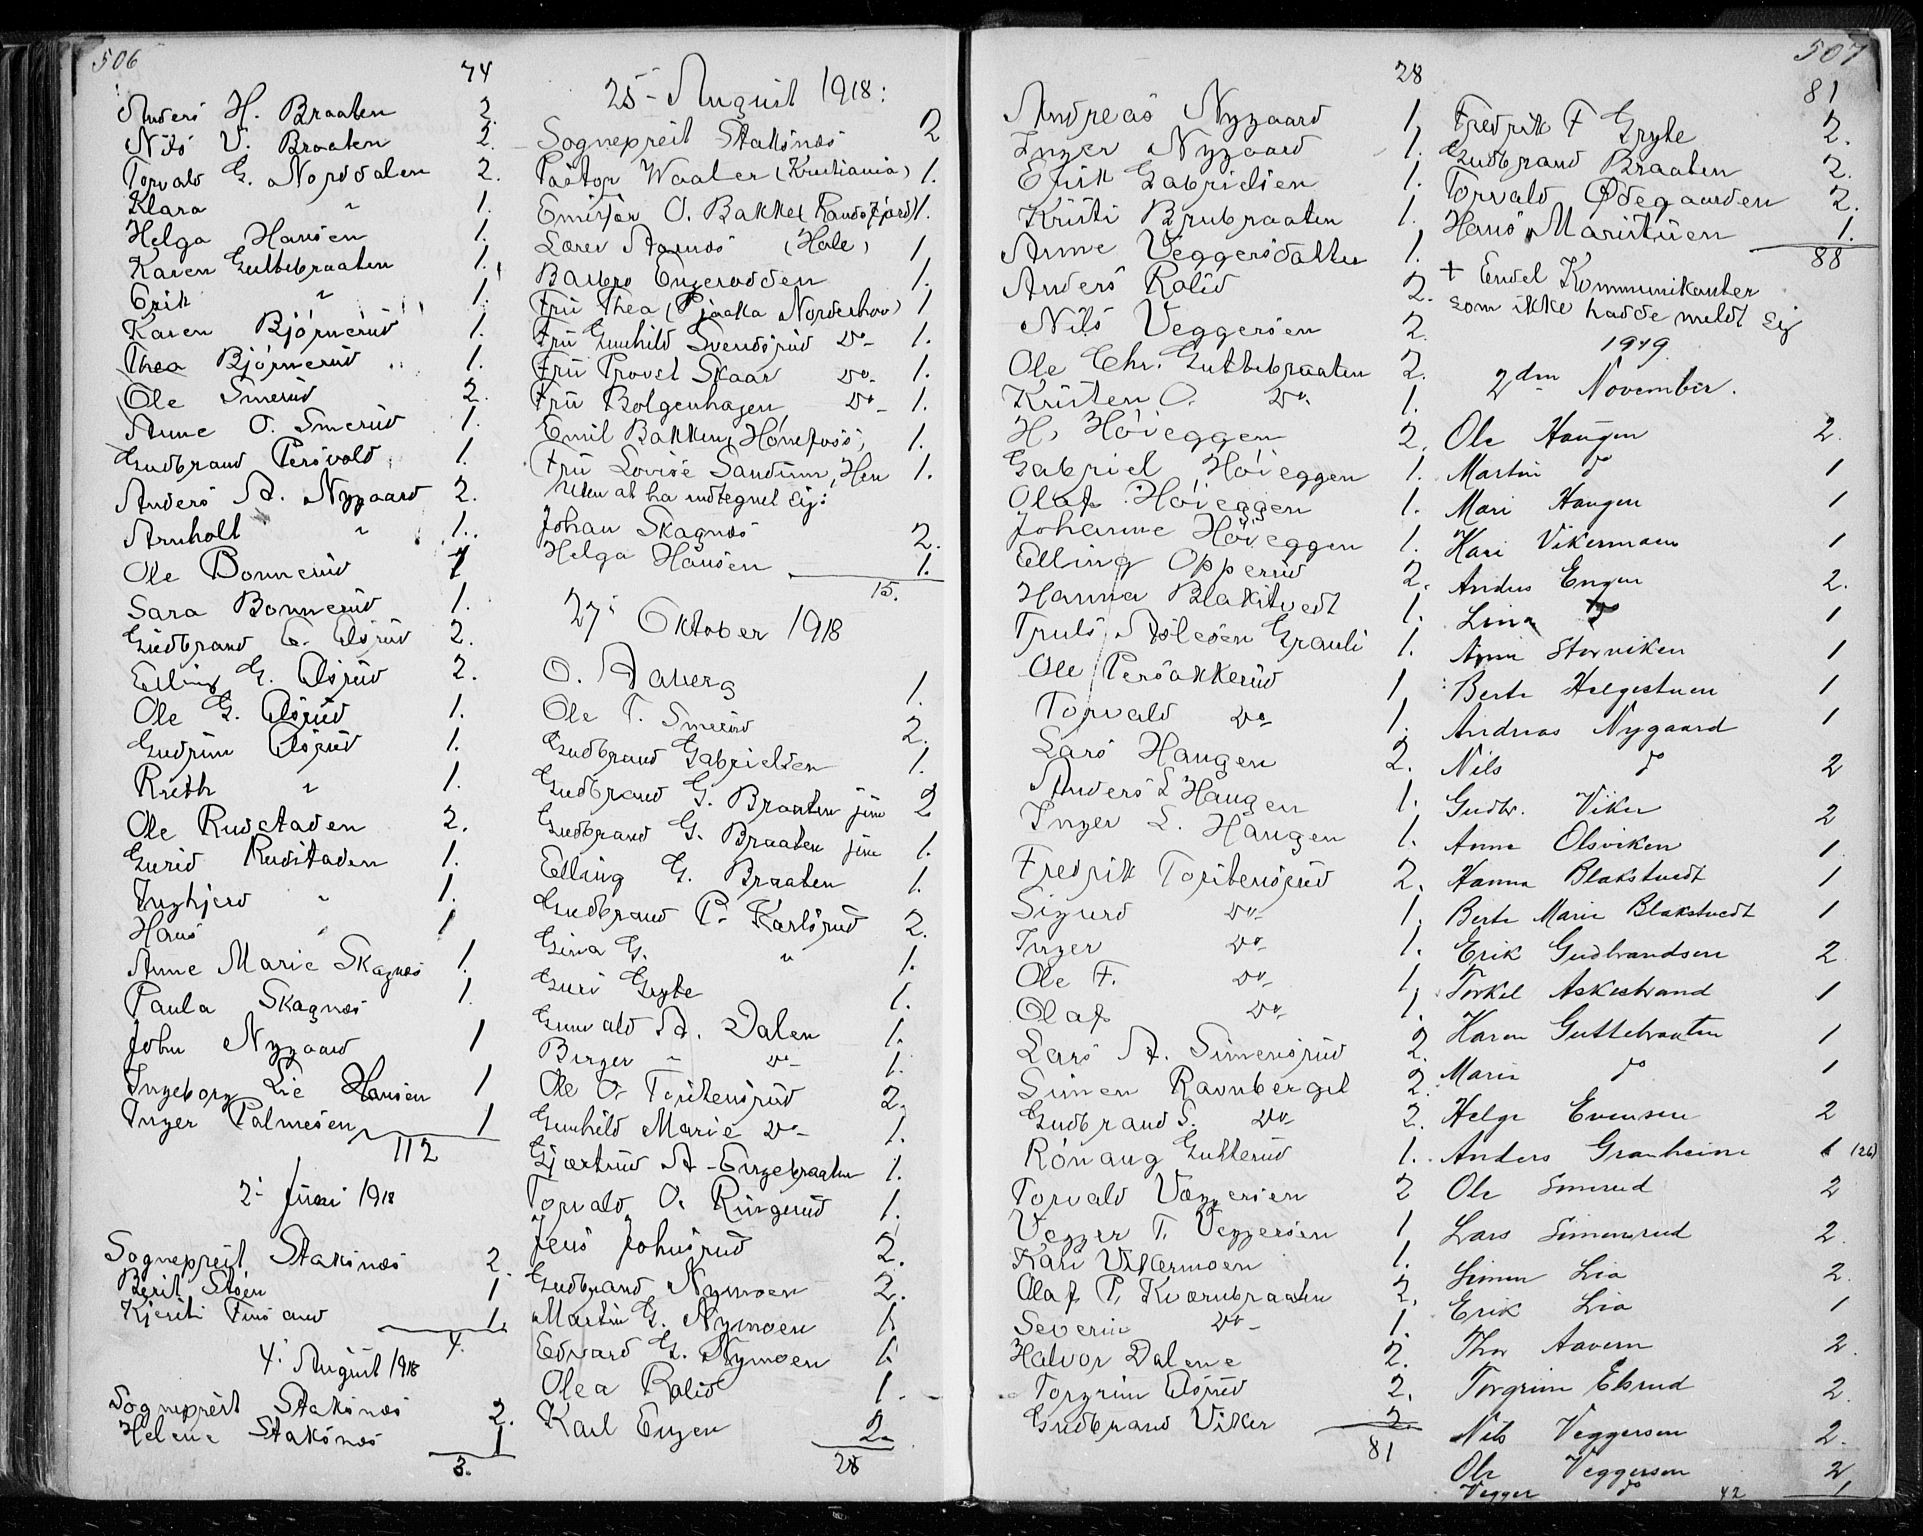 506
74
Anders H. Braaten 2.
Nils V. Braaten 2.
Torvald G. Norddalen 2.
Klara " 1.
Helga Hansen 1.
Karen Guttebraaten 1.
Erik " 1.
Karen Bjørnerud 1.
Thea Bjørnerud 1.
Ole Smerud 2.
Anne O. Smerud 1.
Gudbrand Persvold 1.
Anders A. Nygaard 2.
Arnholt " 1.
Ole Bonnerud 1
Sara Bonnerud 1.
Gudbrand G. Elsrud 2.
Elling G. Elsrud 2.
Ole G. Elsrud 1.
Gudrun Elsrud 1.
Ruth " 1.
Ole Rudstaden 2.
Gurid Rudstaden 1.
Ingbjerd " 1.
Hans " 1
Anne Marie Skagnæs 1.
Paula Skagnæs 1.
John Nygaard 1
Ingeborg Lie Hansen 1
Inger Palmesen 1
112
2. Juni 1918
Sogneprest Staksnæs 2.
Berit Støen 1
Kjersti Finsand 1.
4.
4. August 1918
Sogneprest Staksnæs 2.
Helene Staksnæs 1
3.
25 - August 1918:
Sogneprest Staksnæs 2
Pastor Waaler (Kristiania) 1.
Emisær O. Bakke (Randsfjord) 1.
Lærer Aarnæs (Hole) 1
Barbro Engerodden 1.
Fru Thea Pjaaka Norderhov) 1
Fru Gunhild Svendsrud do- 1.
Fru Provst Skaar do- 1.
Fru Bolgenhagen do- 1.
Emil Bakken, Hønefoss, 1.
Fru Lovise Sandum, Hen 1.
Uten at ha indtegnet sig:
Johan Skagnæs 2.
Helga Hansen 1.
15.
27. Oktober 1918
O. Aaberg 1.
Ole T. Smerud 2.
Gudbrand Gabrielsen 1.
Gudbrand G. Braaten jun 2
Gudbrand G. Braaten jun 1.
Elling G. Braaten 1.
Gudbrand P. Karlsrud 2.
Gina G. " 1.
Guri Gryte 1.
Gunvald A. Dalen 1.
Birger " do- 1.
Ole O. Torstensrud 2.
Gunhild Marie do- 1.
Gjærtrud A. Engebraaten 1.
Torvald O. Ringerud 1.
Jens Johnsrud 2.
Gudbrand Nymoen 2.
Martin G. Nymoen 1.
Edvard G. Nymoen 1.
Olea Rolid 1.
Karl Engen 2.
28
28
507
Andreas Nygaard 1.
Inger Nygaard 1.
Erik Gabrielsen 1.
Kristi Brubraaten 1.
Anne Veggersdatter 1.
Anders Rolid 2.
Nils Veggersen 2.
Ole Chr. Guttebraaten 2.
Kristen O. do. 1.
H. Høveggen 2.
Gabriel Høieggen 1.
Olaf Høieggen 1.
Johanne Høieggen 1.
Elling Opperud 2.
Hanna Blakstvedt 1.
Truls Aslesen Grauli 1.
Ole Persakkerud 1.
Torvald do. 1.
Lars Haugen 2.
Anders L Haugen 1.
Inger L. Haugen 1.
Fredrik Torstensrud 2.
Sigurd do- 1.
Inger do- 1.
Ole F. do- 1.
Olaf do- 1.
Lars A. Simensrud 2.
Simen Ravnberget 2.
Gudbrand S. do- 2.
Rønaug Gutterud 1.
Torvald Væggersen 2
Vegger T. Veggersen 1
Kari Vikermoen 1.
Olaf P. Kværnbraaten 2.
Severin do- 1.
Halvor Dalene 2.
Torgrim Elsrud 2.
Gudbrand Viker 2.
81
81
Fredrik F Gryte 2.
Gudbrand Braaten 2.
Torvald Ødegaarden 2.
Hans Maristuen 1.
88
+ Endel Kommunikanter
som ikke hadde meldt sig
1919
2den November.
Ole Haugen 2.
Martin do 1
Mari Haugen 1
Kari Vikermoen 1
Anders Engen 2.
Lina do 1
Anna Storviken 1
Berte Helgestuen 1
Andreas Nygaard 1
Nils do 2
Gudbr. Viker 2
Anne Olsviken 1
Hanna Blakstvedt 1
Berte Marie Blakstvedt 1
Erik Gudbrandsen 2
Torkel Askestrand 1
Karen Guttebraaten 1
Marie do 1
Helge Evensen 2
Anders Granheim 1 (26)
Ole Smerud 2
Lars Simensrud 2.
Simen Lia 2.
Erik Lia 1
Thor Aavern 2.
Torgrim Elsrud 2.
Nils Veggersen 2.
Ole Veggersen 2
Vegger do 1
42